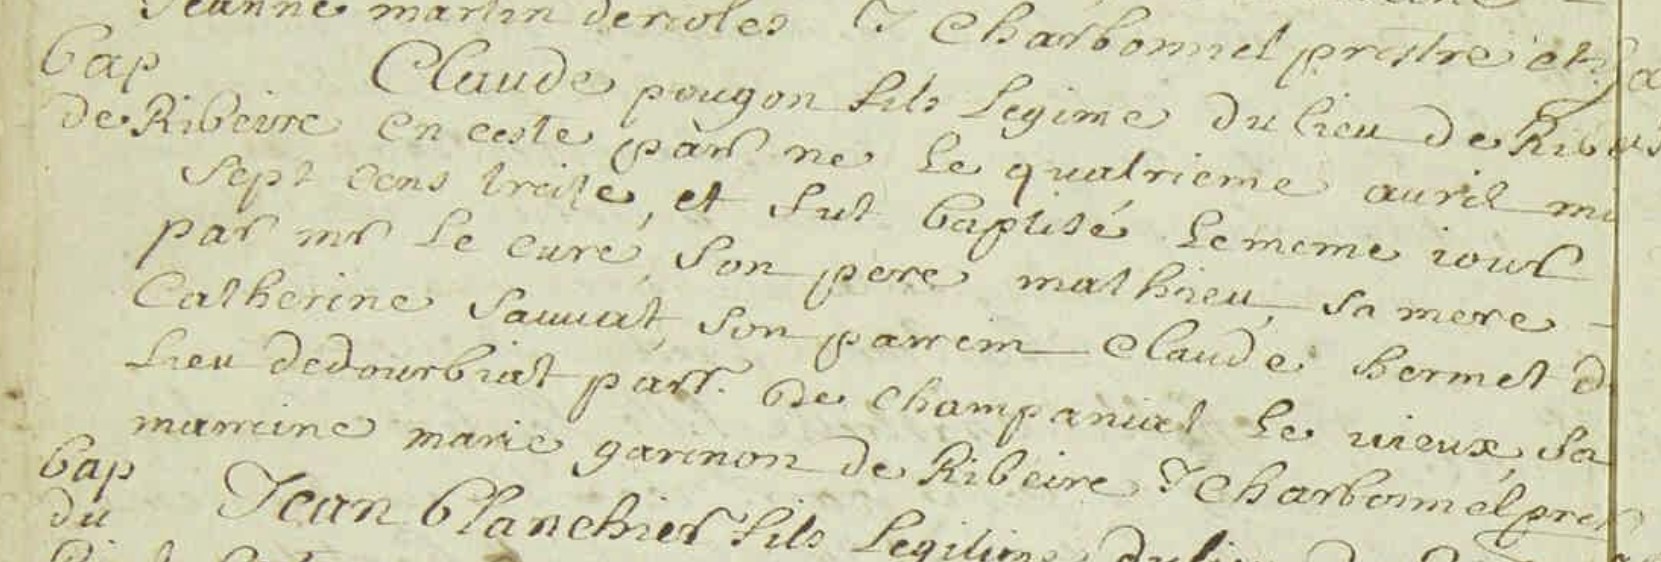 Jeanne martin deriolés J Charbonnel prestre et
bap Claude pougon fils Legime du lieu de Ribe
de Ribeire en ceste parr ne le quatrieme auril mi
sept cens treise, et fut baptisé le meme iour
par mr le curé, son pere mathieu, sa mere
Catherine sauuat, son parrein Claude hermet d
lieu dedourbiat parr. de Champaniat le uieux, sa
marreine marie garinon de Ribeire J Charbonnel pres
bap
du Jean blanchier fils Legitime du lieu de